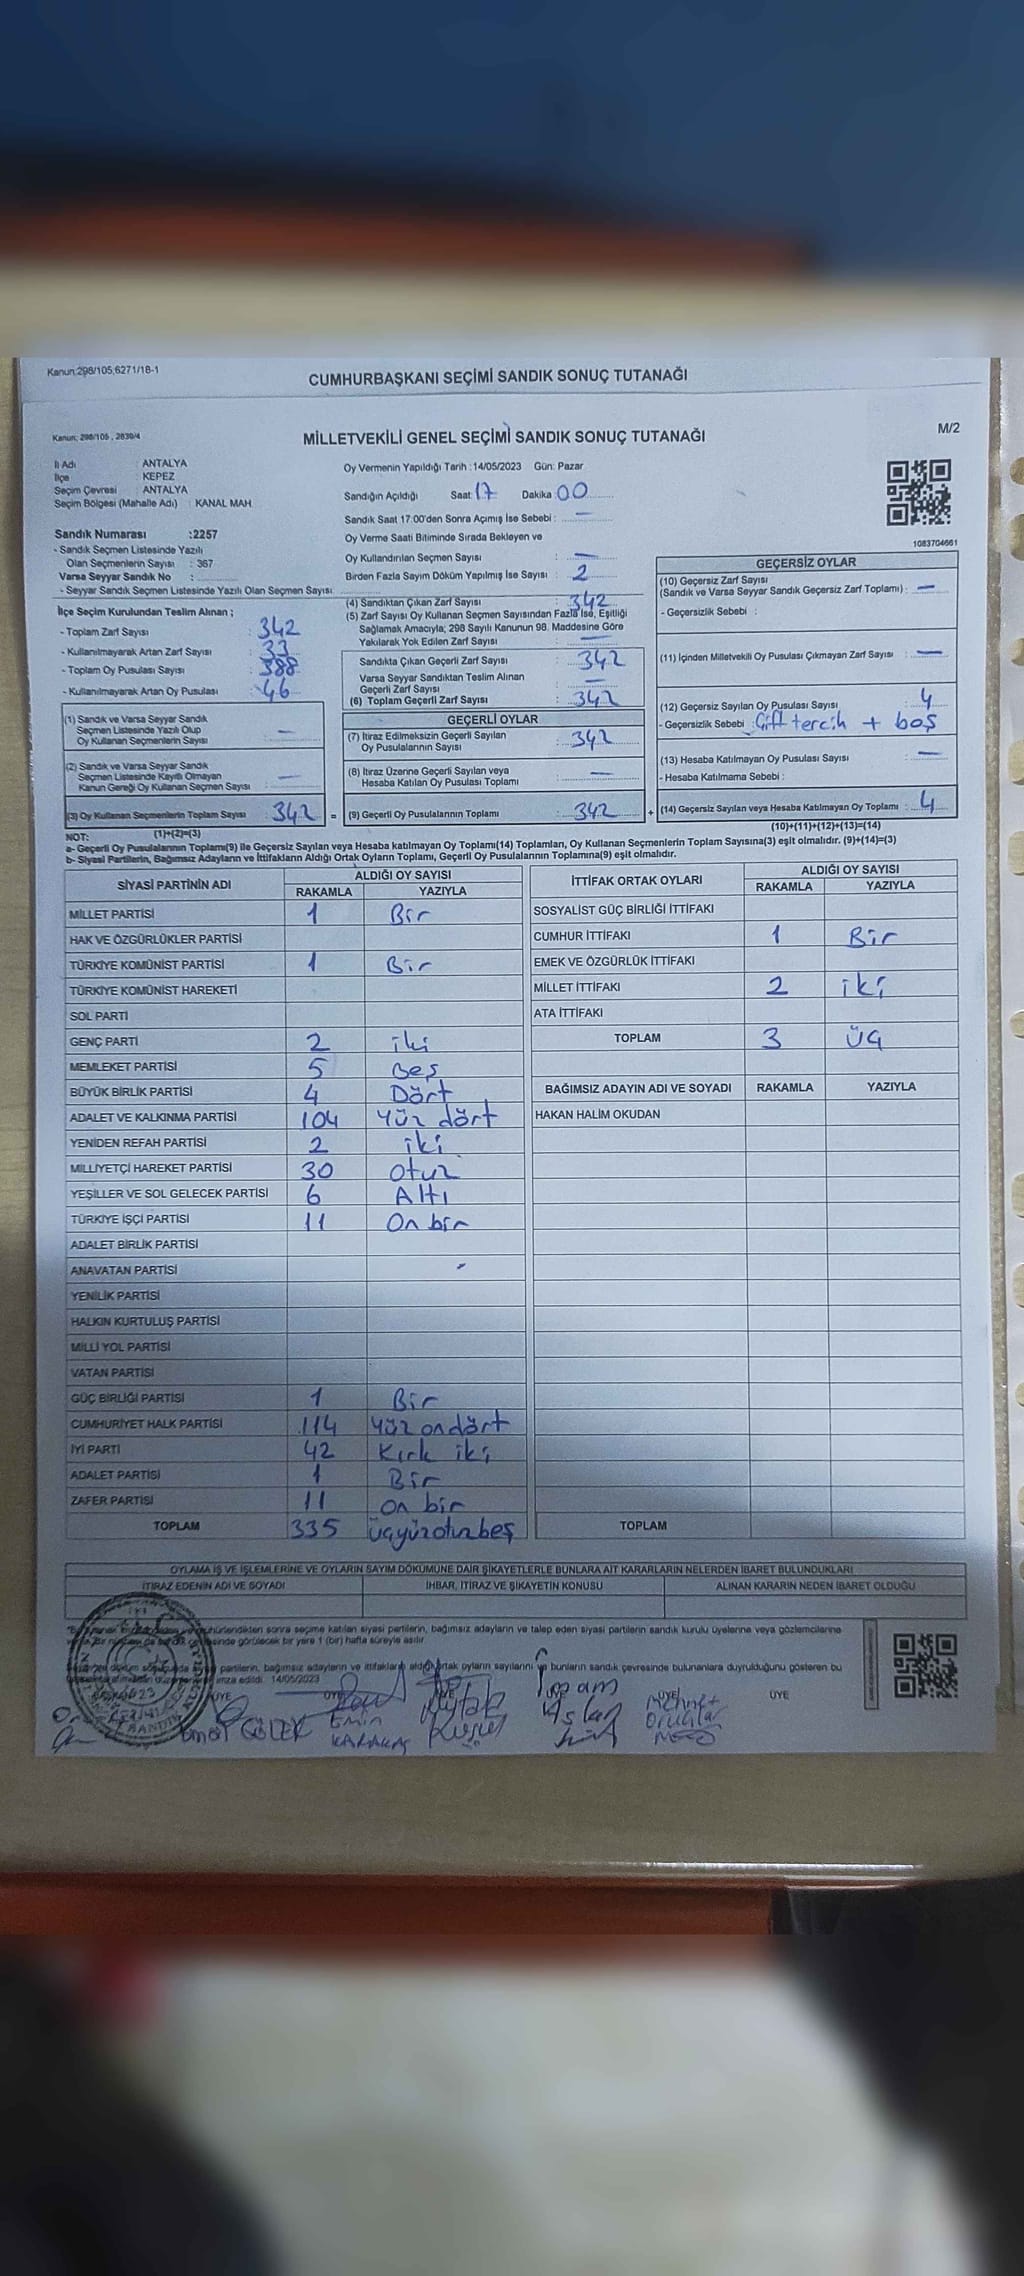 Kanun:298/105,6271/18-1
CUMHURBAŞKANI SEÇİMİ SANDIK SONUÇ TUTANAĞI
Kanun: 298/105 , 2839/4
MİLLETVEKİLİ GENEL SEÇİMİ SANDIK SONUÇ TUTANAĞI
M/2
İl Adı : ANTALYA
İlçe : KEPEZ
Seçim Çevresi : ANTALYA
Seçim Bölgesi (Mahalle Adı) : KANAL MAH
Sandık Numarası :2257
- Sandık Seçmen Listesinde Yazılı
Olan Seçmenlerin Sayısı : 367
Varsa Seyyar Sandık No :
- Seyyar Sandık Seçmen Listesinde Yazılı Olan Seçmen Sayısı
Oy Vermenin Yapıldığı Tarih :14/05/2023 Gün: Pazar
Sandığın Açıldığı Saat: 17 Dakika 00
Sandık Saat 17:00'den Sonra Açımış İse Sebebi : —
Oy Verme Saati Bitiminde Sırada Bekleyen ve
Oy Kullandırılan Seçmen Sayısı : —
Birden Fazla Sayım Döküm Yapılmış İse Sayısı : 2
1083704661
İlçe Seçim Kurulundan Teslim Alınan ;
- Toplam Zarf Sayısı : 342
- Kullanılmayarak Artan Zarf Sayısı : 33
- Toplam Oy Pusulası Sayısı : 388
- Kullanılmayarak Artan Oy Pusulası : 46
(1) Sandık ve Varsa Seyyar Sandık
Seçmen Listesinde Yazılı Olup
Oy Kullanan Seçmenlerin Sayısı : —
(2) Sandık ve Varsa Seyyar Sandık
Seçmen Listesinde Kayıtlı Olmayan
Kanun Gereği Oy Kullanan Seçmen Sayısı : —
(3) Oy Kullanan Seçmenlerin Toplam Sayısı : 342 =
(4) Sandıktan Çıkan Zarf Sayısı : 342
(5) Zarf Sayısı Oy Kullanan Seçmen Sayısından Fazla İse, Eşitliği
Sağlamak Amacıyla; 298 Sayılı Kanunun 98. Maddesine Göre
Yakılarak Yok Edilen Zarf Sayısı : —
Sandıkta Çıkan Geçerli Zarf Sayısı : 342
Varsa Seyyar Sandıktan Teslim Alınan
Geçerli Zarf Sayısı : —
(6) Toplam Geçerli Zarf Sayısı : 342
GEÇERLİ OYLAR
(7) İtiraz Edilmeksizin Geçerli Sayılan
Oy Pusulalarının Sayısı : 342
(8) İtiraz Üzerine Geçerli Sayılan veya
Hesaba Katılan Oy Pusulası Toplamı : —
(9) Geçerli Oy Pusulalarının Toplamı : 342 +
GEÇERSİZ OYLAR
(10) Geçersiz Zarf Sayısı
(Sandık ve Varsa Seyyar Sandık Geçersiz Zarf Toplamı) : —
- Geçersizlik Sebebi :
(11) İçinden Milletvekili Oy Pusulası Çıkmayan Zarf Sayısı : —
(12) Geçersiz Sayılan Oy Pusulası Sayısı : 4
- Geçersizlik Sebebi : Çift tercih + boş
(13) Hesaba Katılmayan Oy Pusulası Sayısı : —
- Hesaba Katılmama Sebebi :
(14) Geçersiz Sayılan veya Hesaba Katılmayan Oy Toplamı : 4
NOT: (1)+(2)=(3)
(10)+(11)+(12)+(13)=(14)
a- Geçerli Oy Pusulalarının Toplamı(9) ile Geçersiz Sayılan veya Hesaba katılmayan Oy Toplamı(14) Toplamları, Oy Kullanan Seçmenlerin Toplam Sayısına(3) eşit olmalıdır. (9)+(14)=(3)
b- Siyasi Partilerin, Bağımsız Adayların ve İttifakların Aldığı Ortak Oyların Toplamı, Geçerli Oy Pusulalarının Toplamına(9) eşit olmalıdır.
SİYASİ PARTİNİN ADI ALDIĞI OY SAYISI
RAKAMLA YAZIYLA
MİLLET PARTİSİ 1 Bir
HAK VE ÖZGÜRLÜKLER PARTİSİ
TÜRKİYE KOMÜNİST PARTİSİ 1 Bir
TÜRKİYE KOMÜNİST HAREKETİ
SOL PARTİ
GENÇ PARTİ 2 iki
MEMLEKET PARTİSİ 5 Beş
BÜYÜK BİRLİK PARTİSİ 4 Dört
ADALET VE KALKINMA PARTİSİ 104 Yüz dört
YENİDEN REFAH PARTİSİ 2 iki
MİLLİYETÇİ HAREKET PARTİSİ 30 otuz
YEŞİLLER VE SOL GELECEK PARTİSİ 6 Altı
TÜRKİYE İŞÇİ PARTİSİ 11 On bir
ADALET BİRLİK PARTİSİ
ANAVATAN PARTİSİ
YENİLİK PARTİSİ
HALKIN KURTULUŞ PARTİSİ
MİLLİ YOL PARTİSİ
VATAN PARTİSİ
GÜÇ BİRLİĞİ PARTİSİ 1 Bir
CUMHURİYET HALK PARTİSİ 114 Yüz on dört
İYİ PARTİ 42 Kırk iki
ADALET PARTİSİ 1 Bir
ZAFER PARTİSİ 11 On bir
TOPLAM 335 üçyüzotuzbeş
İTTİFAK ORTAK OYLARI ALDIĞI OY SAYISI
RAKAMLA YAZIYLA
SOSYALİST GÜÇ BİRLİĞİ İTTİFAKI
CUMHUR İTTİFAKI 1 Bir
EMEK VE ÖZGÜRLÜK İTTİFAKI
MİLLET İTTİFAKI 2 iki
ATA İTTİFAKI
TOPLAM 3 üç
BAĞIMSIZ ADAYIN ADI VE SOYADI RAKAMLA YAZIYLA
HAKAN HALİM OKUDAN
TOPLAM
OYLAMA İŞ VE İŞLEMLERİNE VE OYLARIN SAYIM DÖKÜMÜNE DAİR ŞİKAYETLERLE BUNLARA AİT KARARLARIN NELERDEN İBARET BULUNDUKLARI
İTİRAZ EDENİN ADI VE SOYADI İHBAR, İTİRAZ VE ŞİKAYETİN KONUSU ALINAN KARARIN NEDEN İBARET OLDUĞU
sonra seçime katılan siyasi partilerin, bağımsız adayların ve talep eden siyasi partilerin sandık kurulu üyelerine veya gözlemcilerine
görülecek bir yere 1 (bir) hafta süreyle asılır
partilerin, bağımsız adayların ve ittifakların aldığı ortak oyların sayılarını ve bunların sandık çevresinde bulunanlara duyurulduğunu gösteren bu
imza edildi. 14/05/2023
ÜYE ÜYE ÜYE ÜYE ÜYE
GÖLEK Emin KARAKAŞ Aslan Mehmet